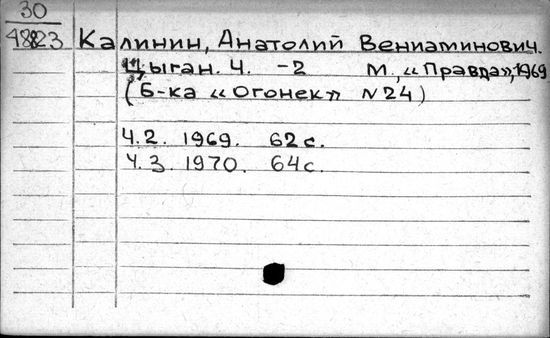 30
48823
Калинин, Анатолий Вениаминович.
Цыган. Ч. -2 М., „Правда”, 1969
(Б-ка „Огонек” N24)
Ч.2. 1969. 62 с.
Ч.3. 1970. 64 с.